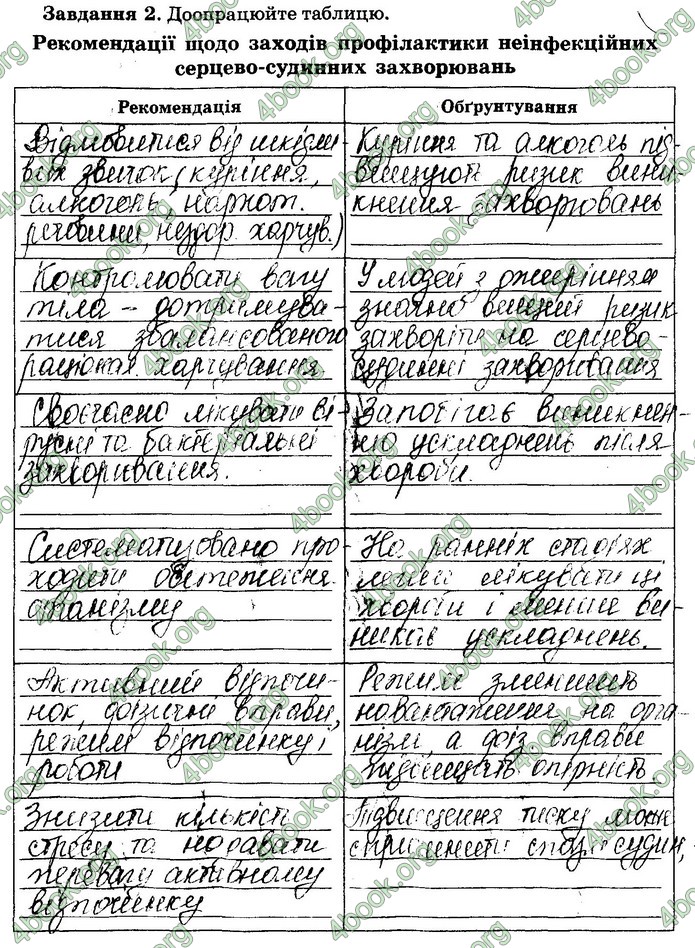 Завдання 2. Доопрацюйте таблицю.
Рекомендації щодо заходів профілактики неінфекційних
серцево-судинних захворювань
Рекомендація
Обґрунтування
Відмовитися від шкідли-
вих звичок (куріння,
алкоголь, наркот.
речовини, нездор. харчув.)
Куріння та алкоголь під-
вищують ризик вини-
кнення захворювань
Контролювати вагу
тіла – дотримува-
тися збалансованого
раціону харчування
У людей з ожирінням
значно вищий ризик
захворіти на серцево-
судинні захворювання
Своєчасно лікувати ві-
русні та бактеріальні
захворювання.
Запобігає виникнен-
ню ускладнень після
хвороби.
Систематизовано про-
ходити обстеження
організму
На ранніх стадіях
легше лікувати ці
хвороби і менше ви-
никає ускладнень.
Активний відпочи-
нок, фізичні вправи,
режим відпочинку і
роботи
Режим зменшить
навантаження на орга-
нізм, а фіз. вправи
підвищать опірність.
Знизити кількість
стресу та надавати
перевагу активному
відпочинку
Підвищення тиску може
спричинити спазм судин,
4book.org